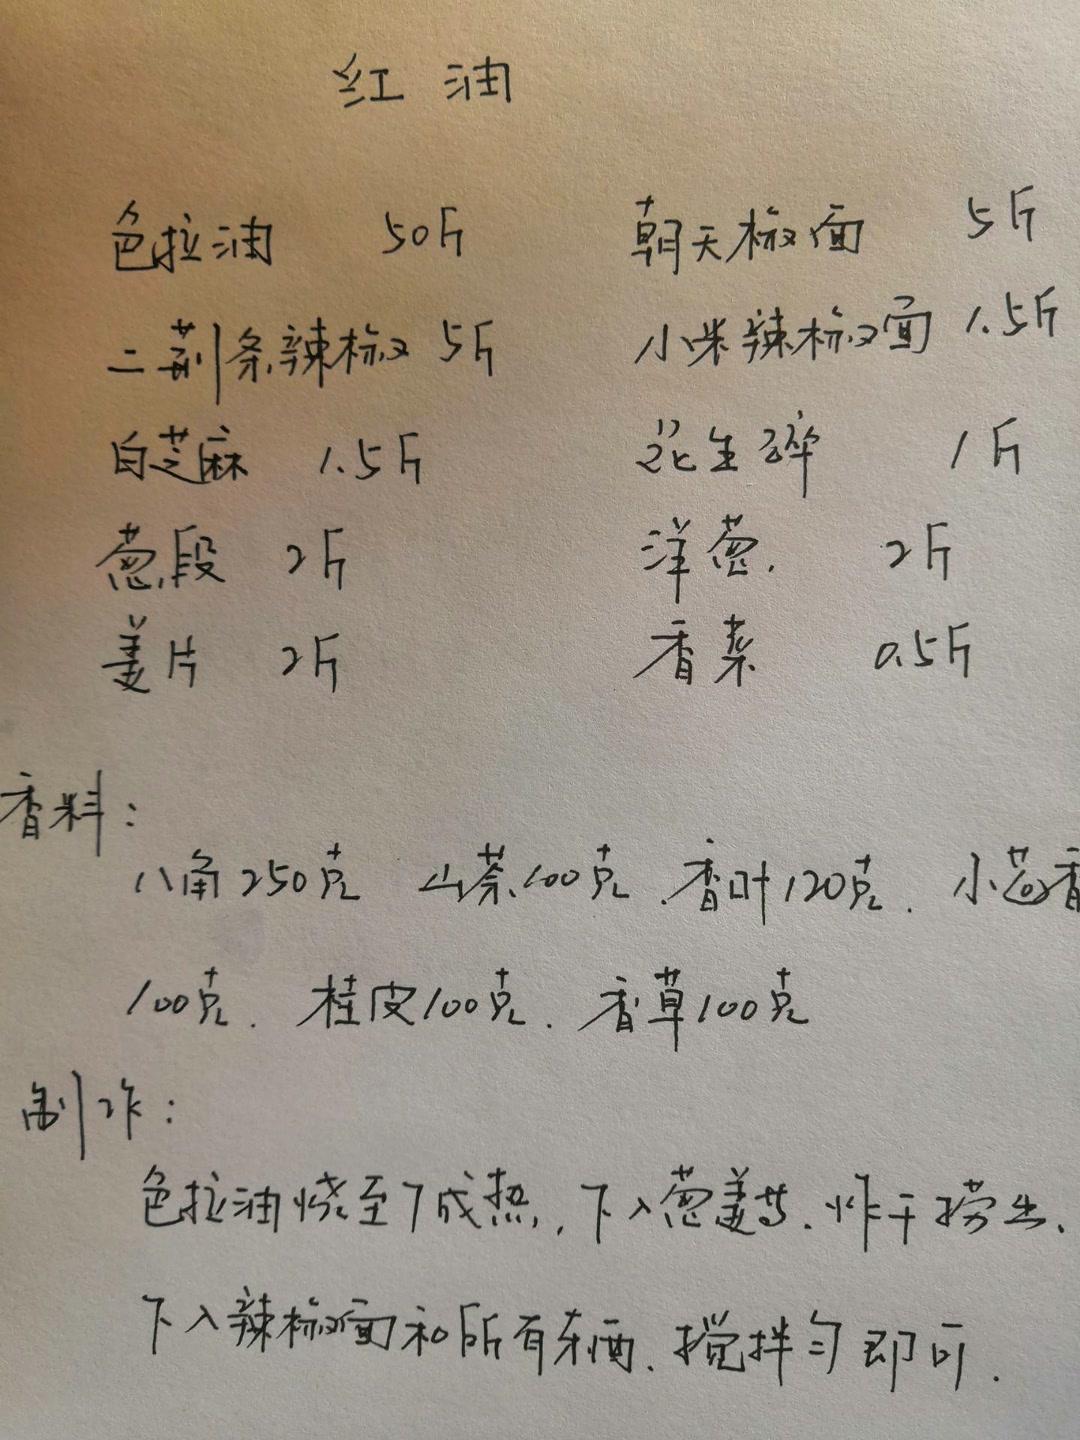 红油
色拉油 50斤 朝天椒面 5斤
二荆条辣椒 5斤 小米辣椒面 1.5斤
白芝麻 1.5斤 花生碎 1斤
葱段 2斤 洋葱. 2斤
姜片 2斤 香菜 0.5斤
香料:
八角250克 山奈100克.香叶120克.小茴香
100克.桂皮100克.香草100克
制作:
色拉油烧至7成热,下入葱姜等.炸干捞出.
下入辣椒面和所有东西.搅拌匀即可.